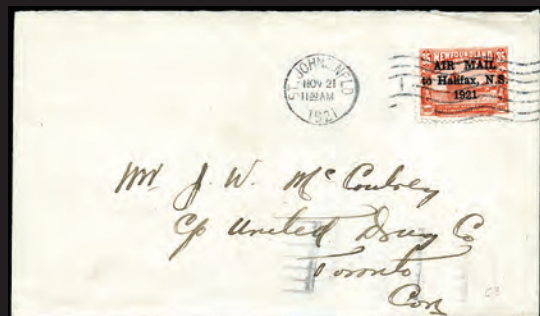 ST. JOHN'S, NFLD
NOV 21
11 AM
1921
35 NEWFOUNDLAND 35
AIR MAIL
to Halifax, N.S.
1921
Mr J. W.
C/o United Drug Co
Toronto
Can